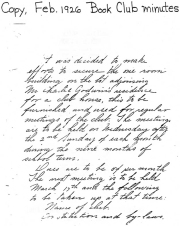 Copy, Feb. 1926 Book Club minutes
I was decided to make
efforts to secure the one room
building on the lot adjoining
Mr Charlie Godwin's residence
for a club house, this to be
furnished and used for regular
meetings of the club. The meetings
are to be held on Wednesday after
the 2nd Monday of each month
during the nine months of
school term.
Dues are to be 10¢ per month
The next meeting is to be held
March 17th and the following
to be taken up at that time:
Name of club
Constitution and by-laws.